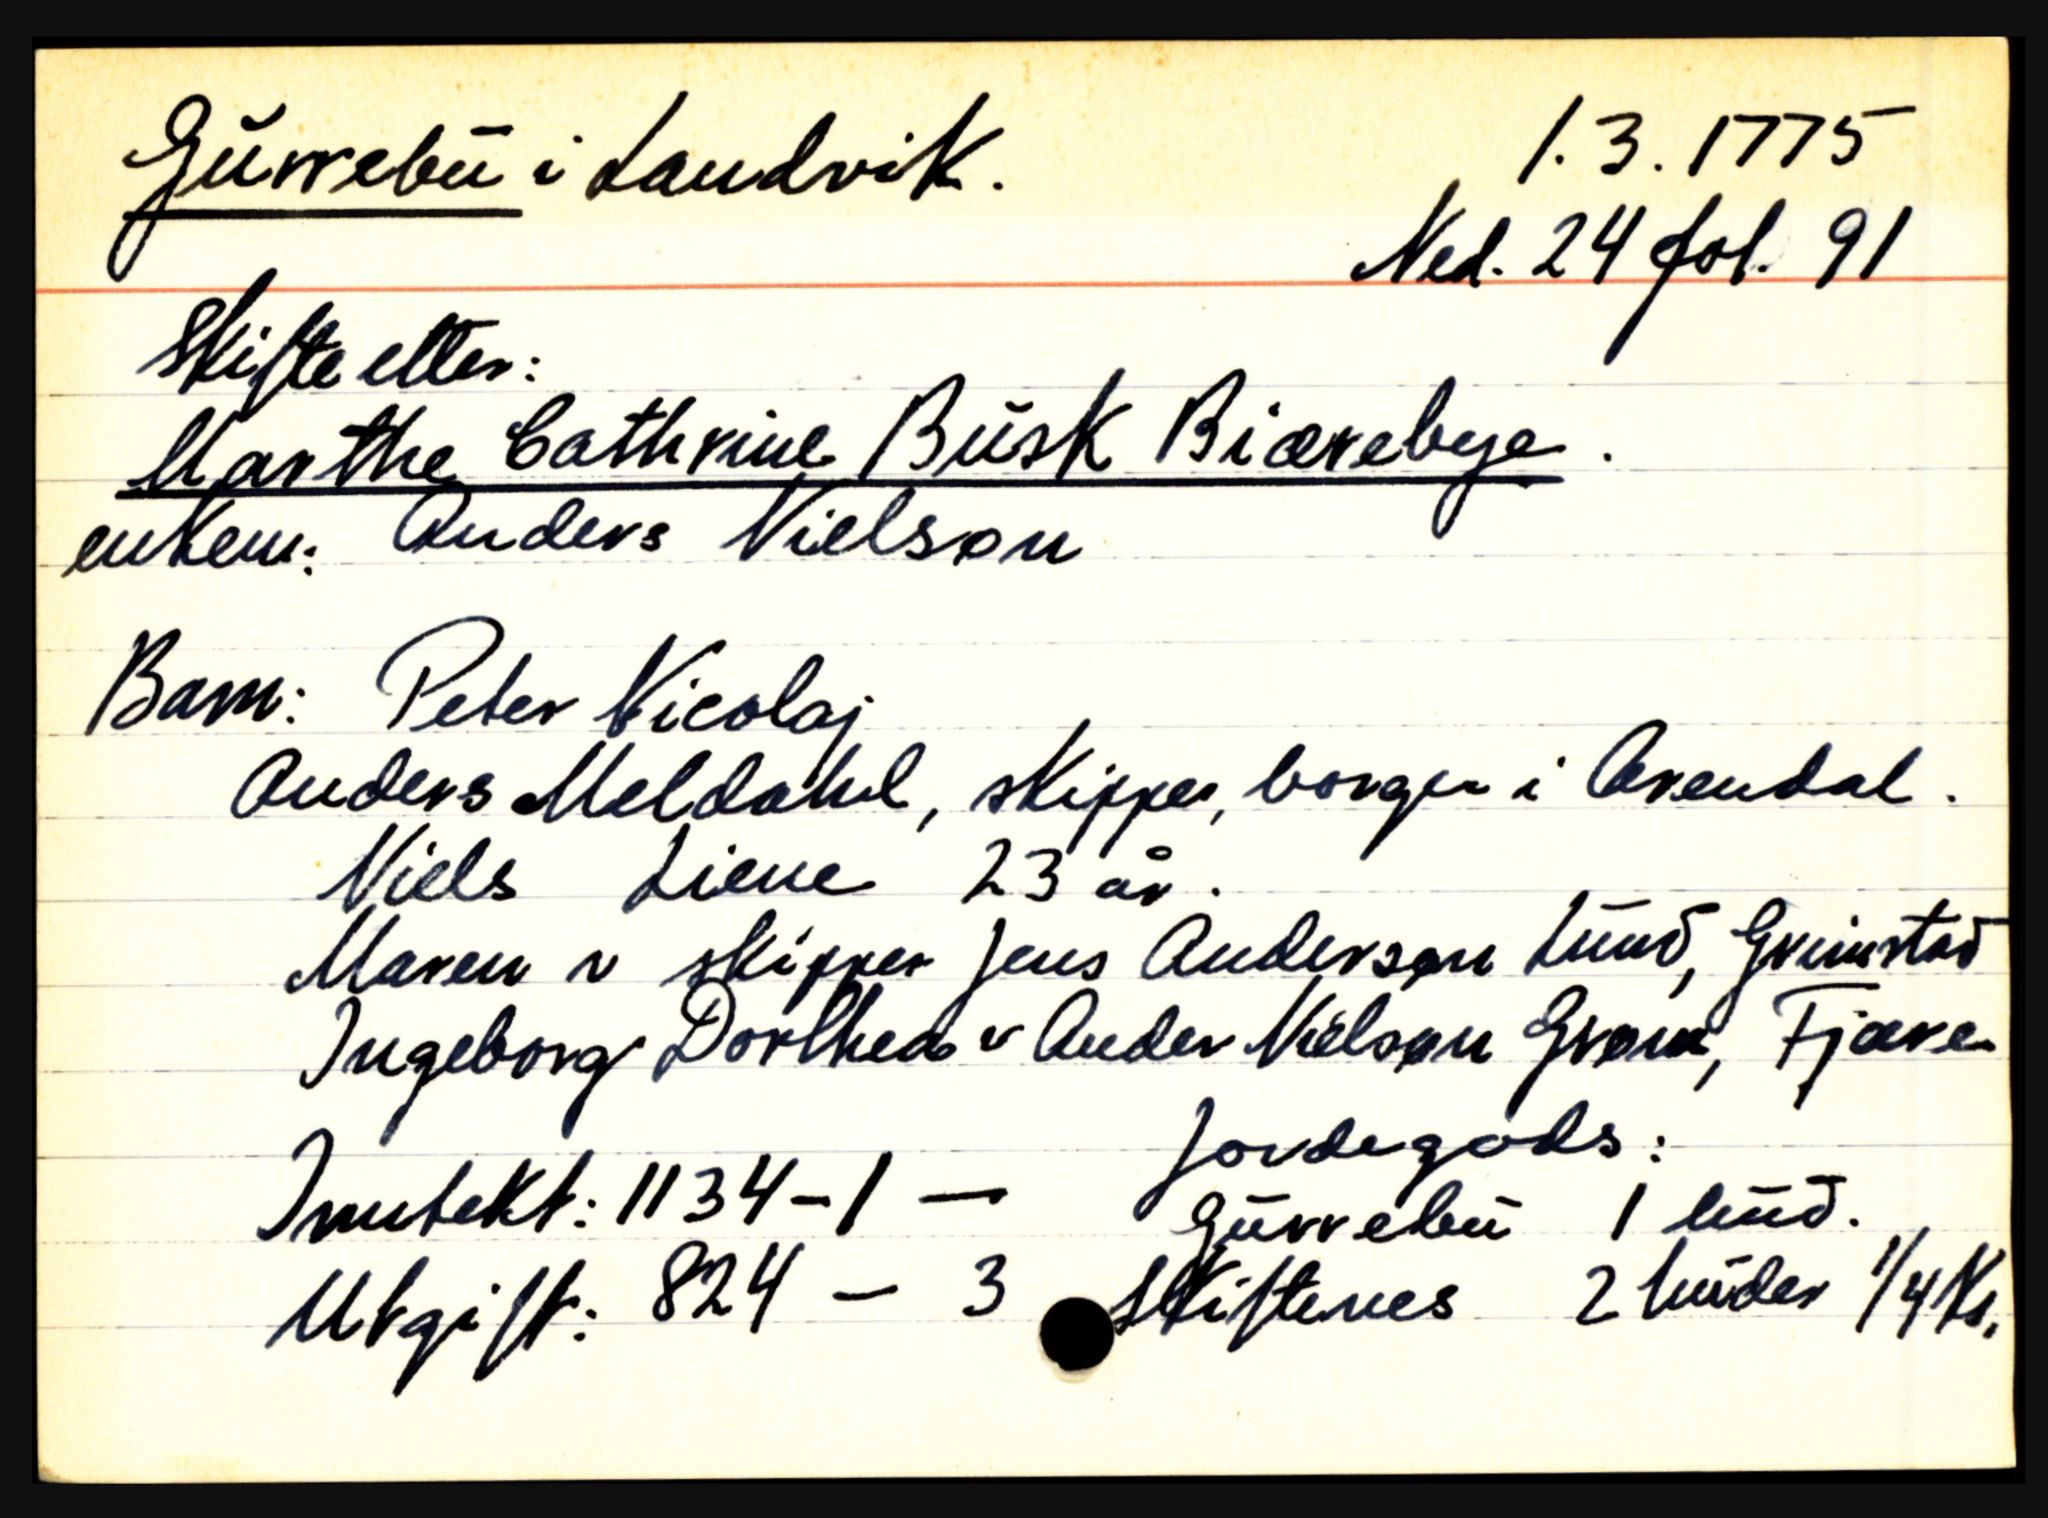 Gurrebu i Landvik.
1.3.1775
Ned. 24 fol. 91
Skifte etter:
Marthe Cathrine Busk Biærebye.
enkem: Anders Nielsøn
Barn: Peter Nicolaj
Anders Meldahl, skipper, borger i Arendal.
Niels Liene 23 år.
Maren v skipper Jens Andersøn Lund, Grimstad
Ingeborg Dorthea v Ander Nielsøn Grøm, Fjære
Inntekt: 1134-1 —
Utgift: 824 — 3
Jordegods:
Gurrebu 1 hud.
Skiftenes 2 huder 1/4 Ks.